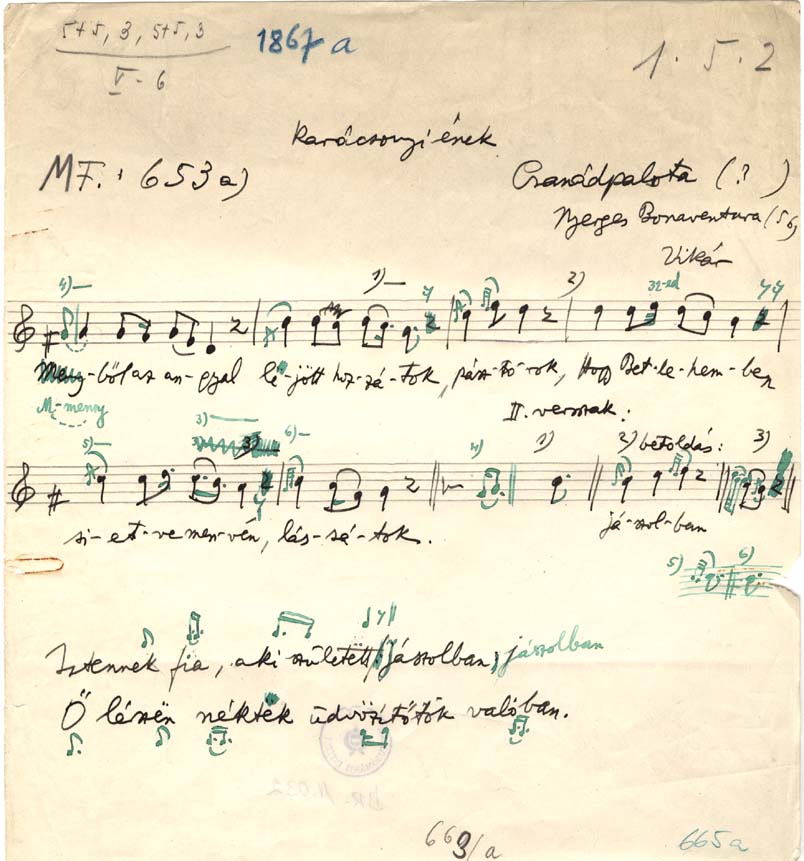 5+5, 3, 5+5, 3
V - 6
1867 a
1. 5. 2
Karácsonyi ének
MF. : 653 a)
Csanádpalota (?)
Nyerges Bonaventura (56)
Vikár
4) 1) 2) 32-ed
-ből az an-gyal lë-jött hoz-zá-tok, pász-to-rok, Hogy Bet-le-hem-ben
M-menny
II. versszak:
5) 3) 6) 4) 1) 2) betoldás: 3)
si-et-ve men-vén, lás-sá-tok.
já-szol-ban
5) 6)
Istennek fia, aki született jászolban, jászolban
Ő lészën néktëk üdvözítőtök valóban.
BR-11.032
669/a
665a